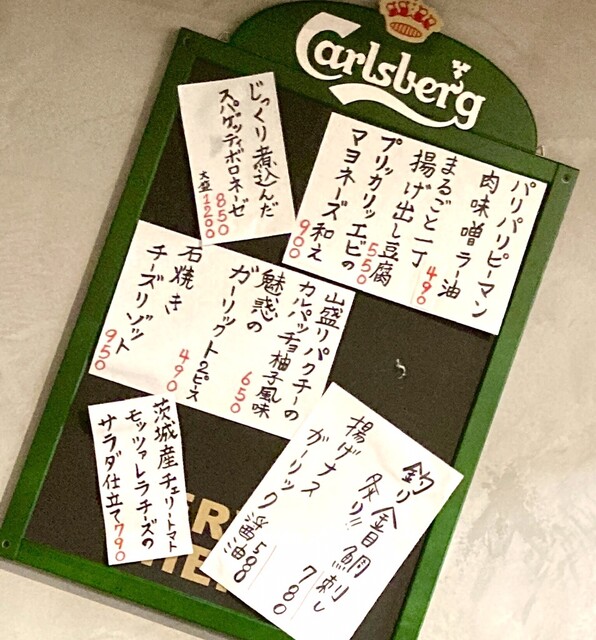 Carlsberg
じっくり煮込んだ
スパゲッティボロネーゼ
850
大盛1200
パリパリピーマン
肉味噌ラー油
490
まるごと一丁
揚げ出し豆腐
550
プリッカリッエビの
マヨネーズ和え
900
山盛りパクチーの
カルパッチョ柚子風味
650
魅惑の
ガーリックト2ピース
490
石焼き
チーズリゾット
950
茨城産チェリートマト
モッツァレラチーズの
サラダ仕立て790
釣り金目鯛刺し
炙り!! 780
揚げナス
ガーリック醤油
580